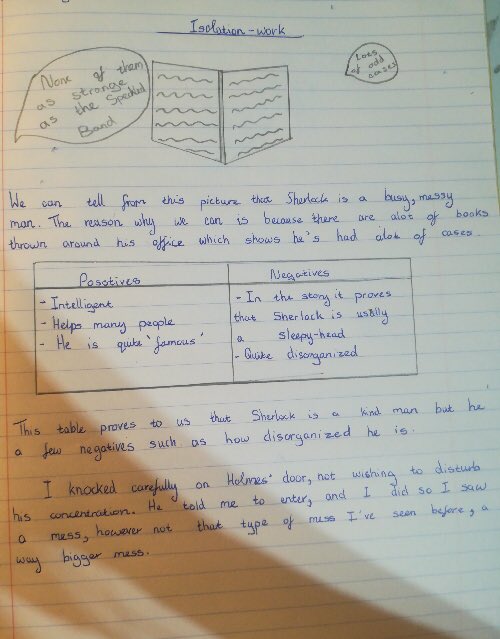 Isolation-work
None of them
as strange
as the Speckled
Band
Lots
of odd
cases
We can tell from this picture that Sherlock is a busy, messy
man. The reason why we can is because there are alot of books
thrown around his office which shows he's had alot of cases.
Posstives
- Intelligent
- Helps many people
- He is quite 'famous'
Negatives
- In the story it proves
that Sherlock is usually
a sleepy-head
- Quite disorganized
This table proves to us that Sherlock is a kind man but he
a few negatives such as how disorganized he is.
I knocked carefully on Holmes' door, not wishing to disturb
his concentration. He told me to enter, and I did so I saw
a mess, however not that type of mess I've seen before, a
way bigger mess.